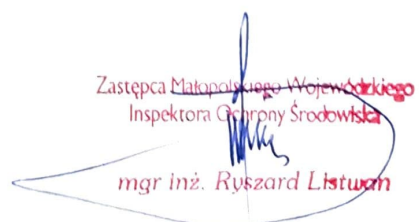 Zastępca Małopolskiego Wojewódzkiego
Inspektora Ochrony Środowiska
mgr inż. Ryszard Listwan